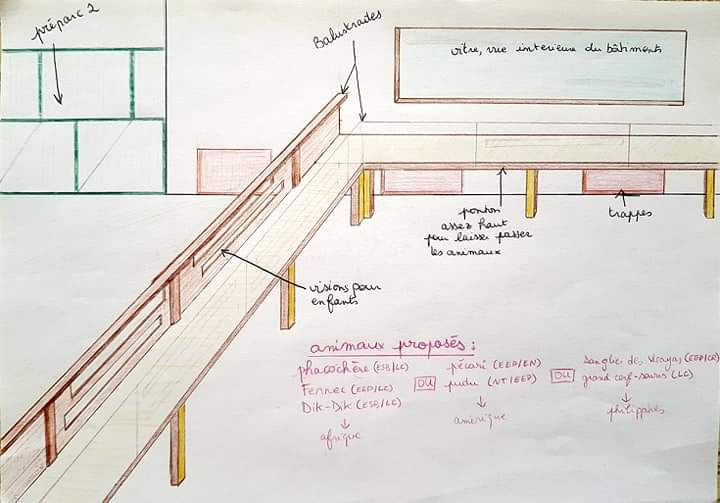 préparc 2
Balustrades
vitre, vue interieure du bâtiments
ponton
assez haut
pour laisser passer
les animaux
trappes
visions pour
enfants
animaux proposés :
phacochère (ESB/LC)
Fennec (EEP/LC)
Dik-Dik (ESB/LC)
afrique
OU
pécari (EEP/EN)
pudu (NT/EEP)
amérique
OU
Sanglier des Visayas (EEP/CR)
grand cerf-souris (LC)
philippines